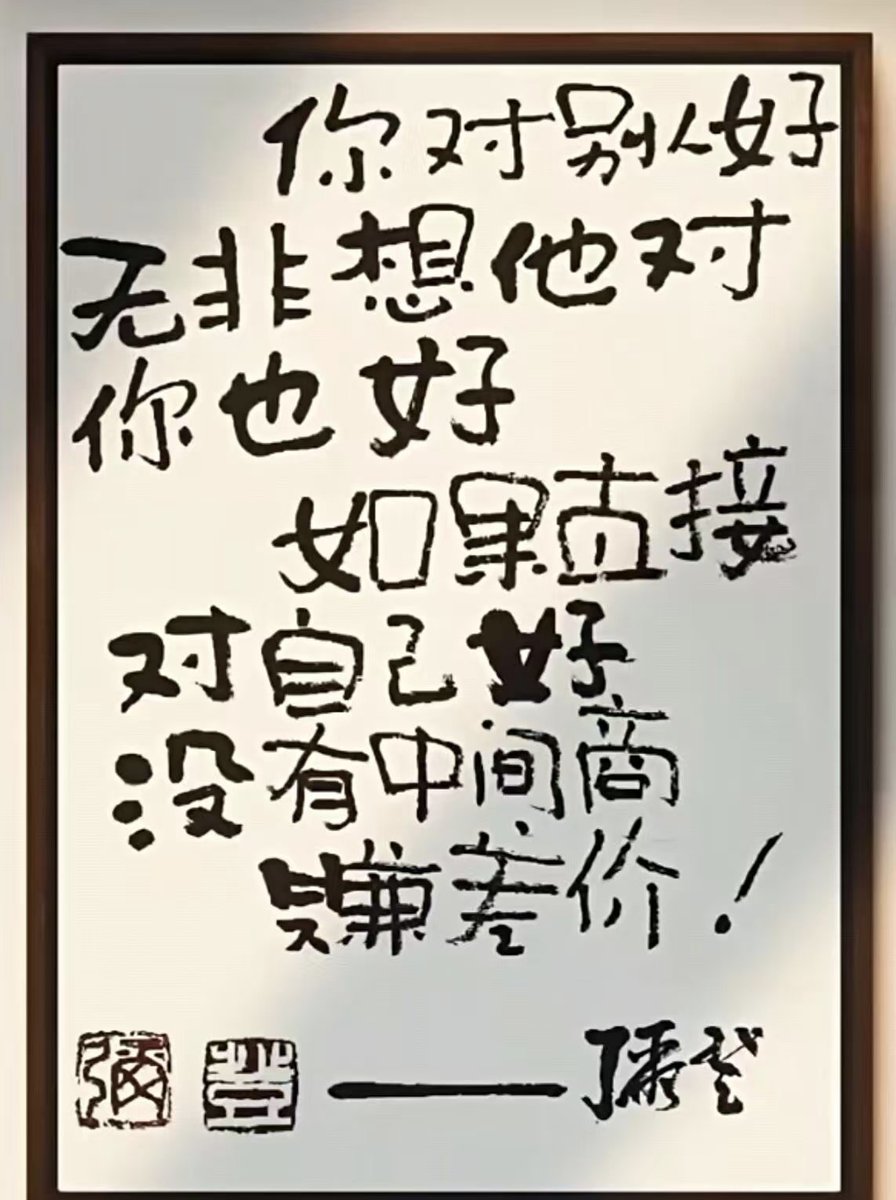 你对别人好
无非想他对
你也好
如果直接
对自己好
没有中间商
赚差价！
——